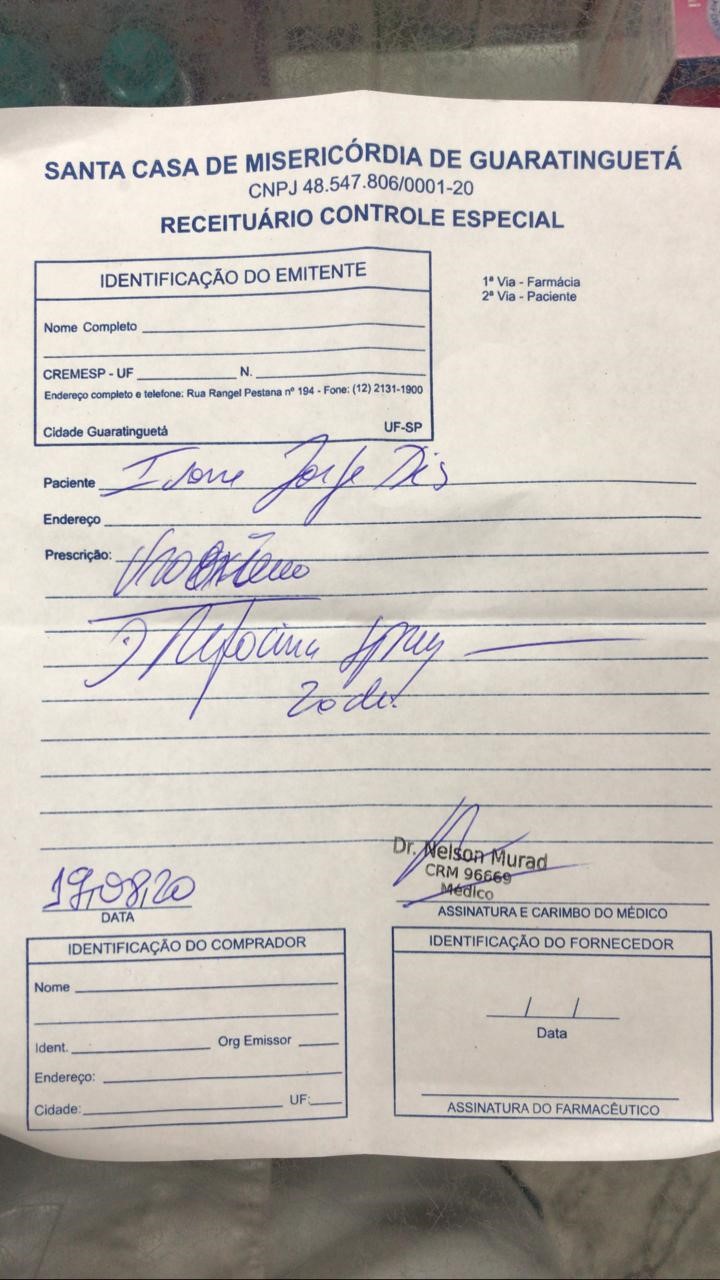 SANTA CASA DE MISERICÓRDIA DE GUARATINGUETÁ
CNPJ 48.547.806/0001-20
RECEITUÁRIO CONTROLE ESPECIAL
IDENTIFICAÇÃO DO EMITENTE
1ª Via - Farmácia
2ª Via - Paciente
Nome Completo
CREMESP - UF N.
Endereço completo e telefone: Rua Rangel Pestana nº 194 - Fone: (12) 2131-1900
Cidade Guaratinguetá UF-SP
Paciente Ivone Jorge
Endereço
Prescrição:
Spray
19,08,20
DATA
Dr. Nelson Murad
CRM 96669
Médico
ASSINATURA E CARIMBO DO MÉDICO
IDENTIFICAÇÃO DO COMPRADOR
Nome
Ident. Org Emissor
Endereço:
Cidade: UF:
IDENTIFICAÇÃO DO FORNECEDOR
/ /
Data
ASSINATURA DO FARMACÊUTICO